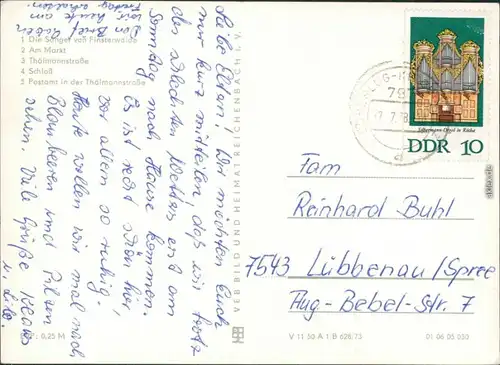 1 Die Sänger von Finsterwalde
2 Am Markt
3 Thälmannstraße
4 Schloß
5 Postamt in der Thälmannstraße
Den Brief haben
wir heute am
Freitag erhalten.
Liebe Eltern! Wir möchten Euch
nur kurz mitteilen, daß wir trotz
des schlechten Wetters erst am
Sonntag nach Hause kommen.
Es ist sehr schön hier,
vor allem so ruhig.
Heute wollen wir mal nach
Blaubeeren und Pilzen
sehen. Viele Grüße Klaus
u. Lilo.
VEB BILD UND HEIMAT REICHENBACH i. V.
0,25 M
V 11 50 A 1 B 628/73
01 06 05 030
79
7.78
Silbermann-Orgel in Rötha
DDR 10
Fam
Reinhard Buhl
7543 Lübbenau/Spree
Aug-Bebel-Str. 7